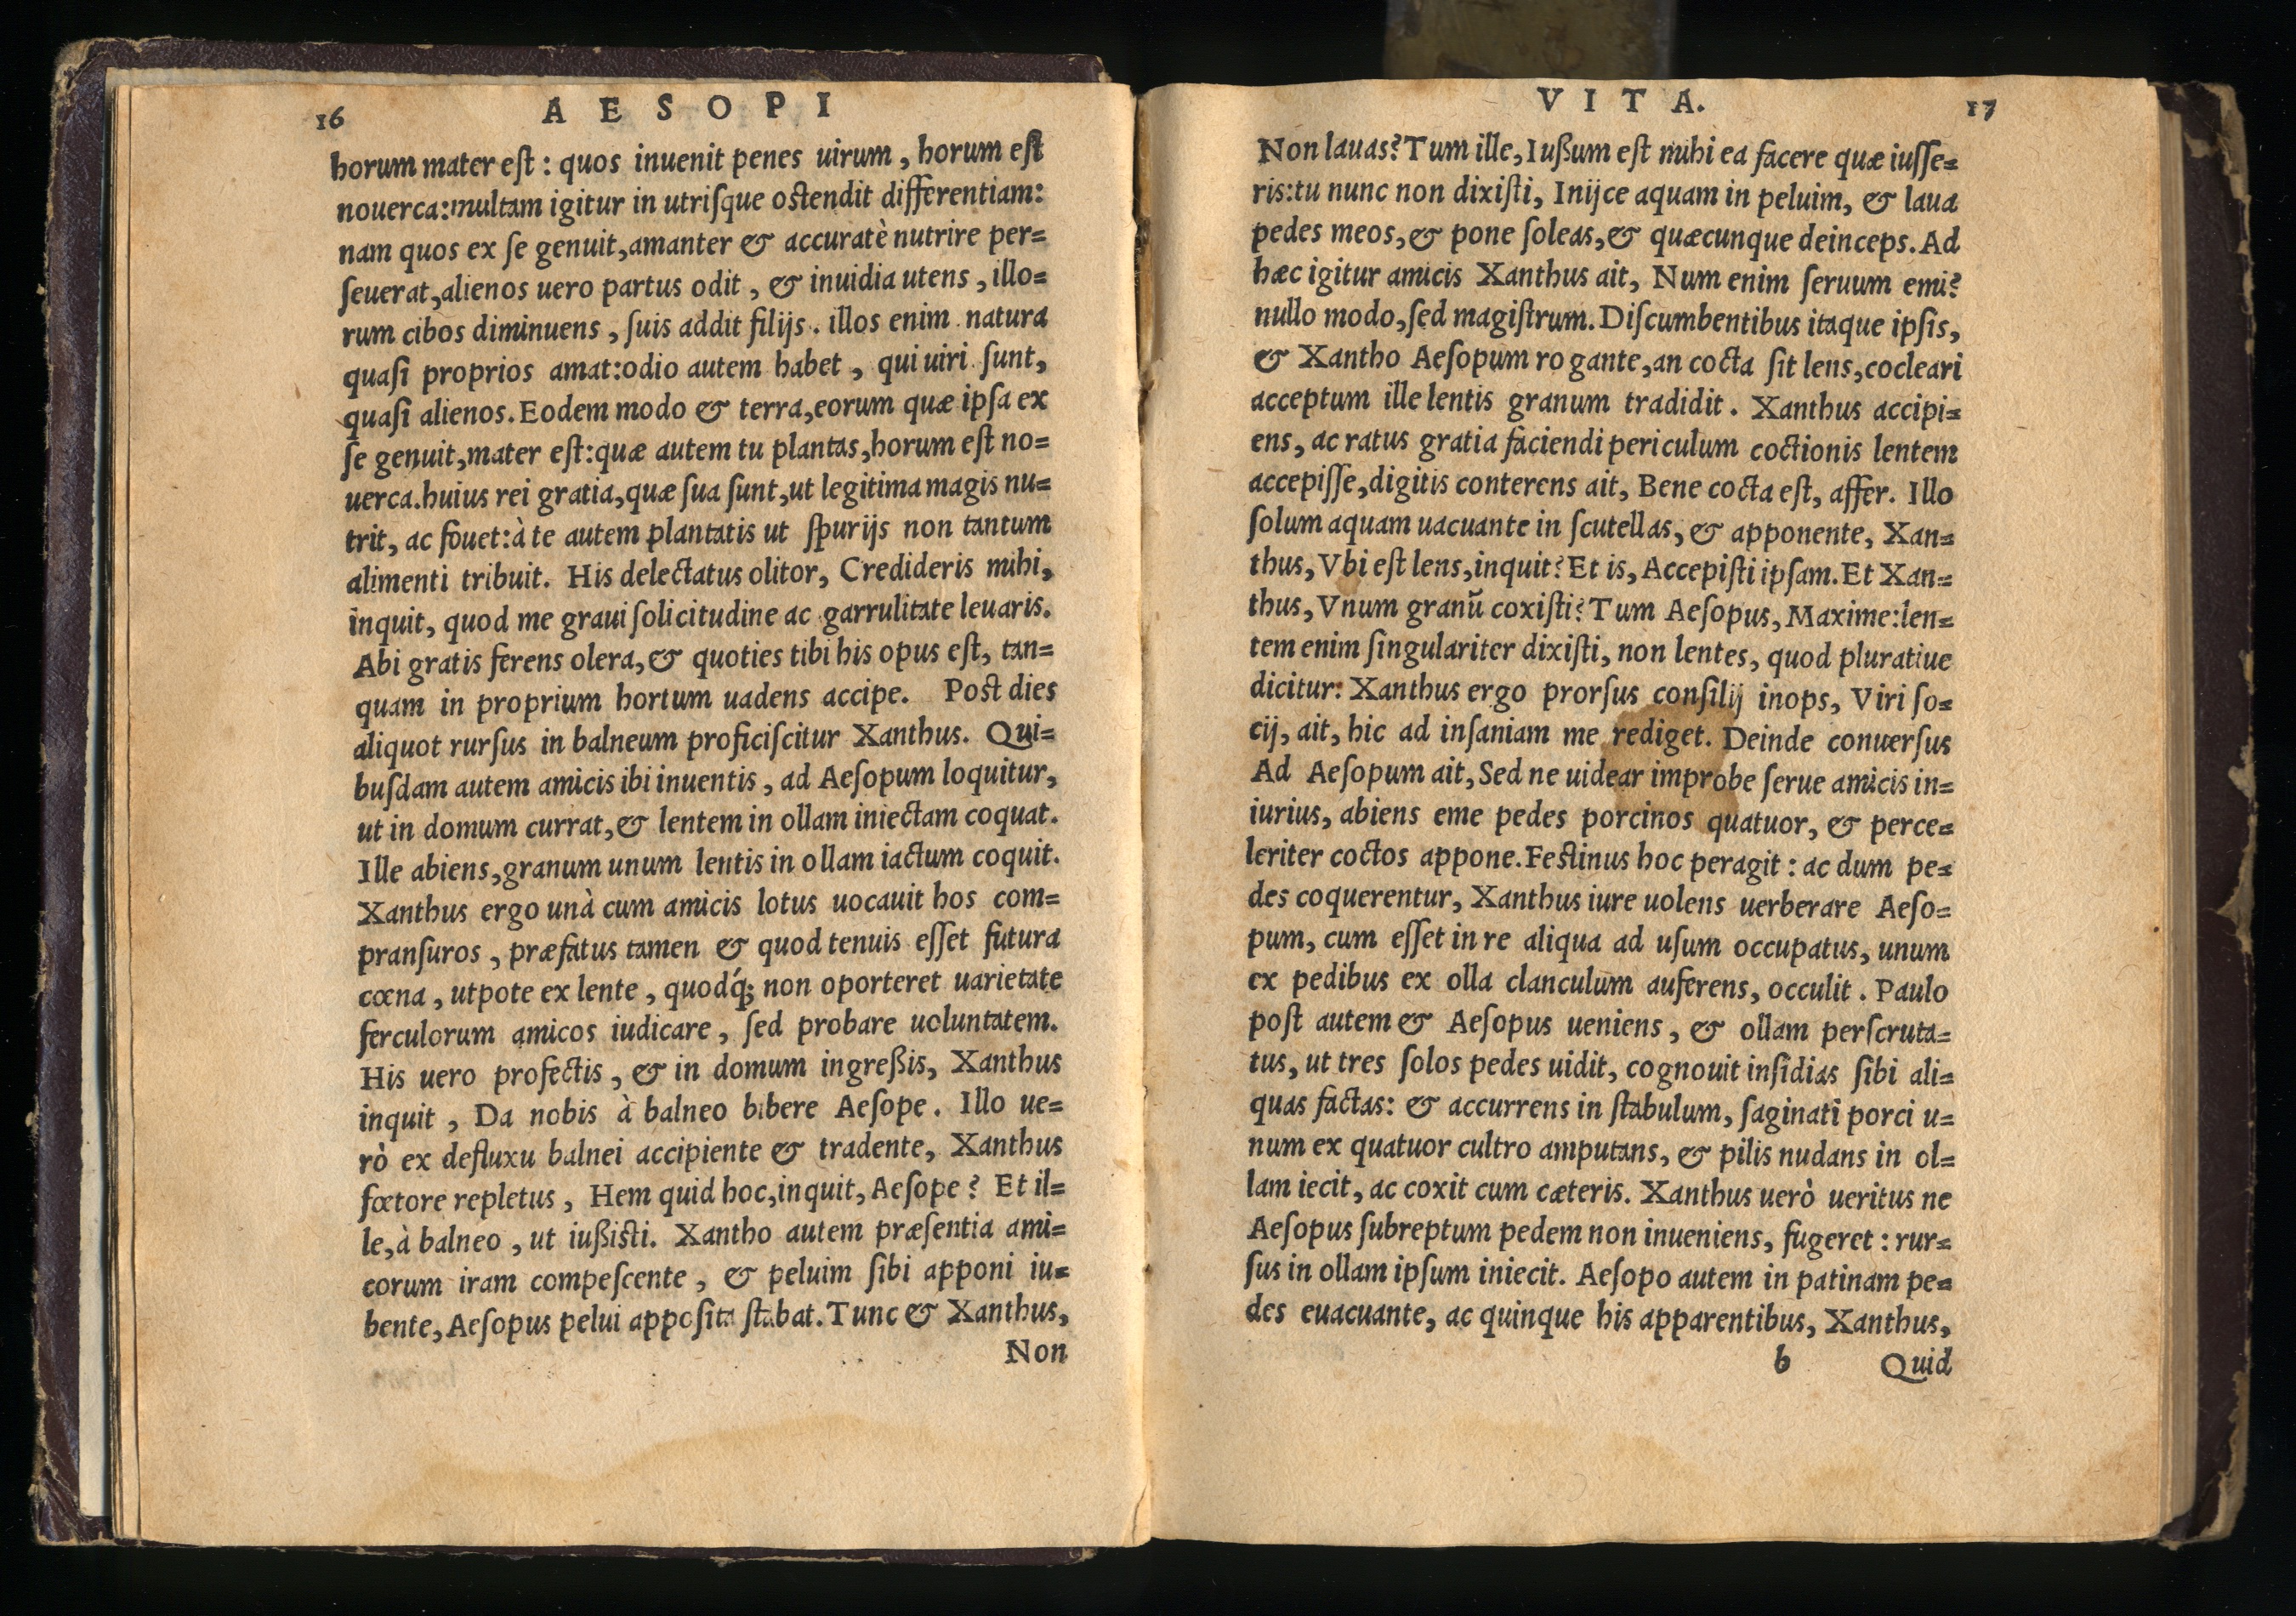 16 AESOPI
horum mater eſt: quos inuenit penes uirum, horum eſt
nouerca: multam igitur in utriſque oſtendit differentiam:
nam quos ex ſe genuit, amanter & accuratè nutrire per=
ſeuerat, alienos uero partus odit, & inuidia utens, illo=
rum cibos diminuens, ſuis addit filijs. illos enim natura
quaſi proprios amat: odio autem habet, qui uiri ſunt,
quaſi alienos. Eodem modo & terra, eorum quæ ipſa ex
ſe genuit, mater eſt: quæ autem tu plantas, horum eſt no=
uerca. huius rei gratia, quæ ſua ſunt, ut legitima magis nu=
trit, ac fouet: à te autem plantatis ut ſpurijs non tantum
alimenti tribuit. His delectatus olitor, Credideris mihi,
inquit, quod me graui ſolicitudine ac garrulitate leuaris.
Abi gratis ferens olera, & quoties tibi his opus eſt, tan=
quam in proprium hortum uadens accipe. Poſt dies
aliquot rurſus in balneum proficiſcitur Xanthus. Qui=
buſdam autem amicis ibi inuentis, ad Aeſopum loquitur,
ut in domum currat, & lentem in ollam iniectam coquat.
Ille abiens, granum unum lentis in ollam iactum coquit.
Xanthus ergo unà cum amicis lotus uocauit hos com=
pranſuros, præfatus tamen & quod tenuis eſſet futura
cœna, utpote ex lente, quodq́; non oporteret uarietate
ferculorum amicos iudicare, ſed probare uoluntatem.
His uero profectis, & in domum ingreßis, Xanthus
inquit, Da nobis à balneo bibere Aeſope. Illo ue=
rò ex defluxu balnei accipiente & tradente, Xanthus
fœtore repletus, Hem quid hoc, inquit, Aeſope? Et il=
le, à balneo, ut iußiſti. Xantho autem præſentia ami=
corum iram compeſcente, & peluim ſibi apponi iu=
bente, Aeſopus pelui appoſita ſtabat. Tunc & Xanthus,
Non
VITA. 17
Non lauas? Tum ille, Iußum eſt mihi ea facere quæ iuſſe=
ris: tu nunc non dixiſti, Inijce aquam in peluim, & laua
pedes meos, & pone ſoleas, & quæcunque deinceps. Ad
hæc igitur amicis Xanthus ait, Num enim ſeruum emi?
nullo modo, ſed magiſtrum. Diſcumbentibus itaque ipſis,
& Xantho Aeſopum rogante, an cocta ſit lens, cocleari
acceptum ille lentis granum tradidit. Xanthus accipi=
ens, ac ratus gratia faciendi periculum coctionis lentem
accepiſſe, digitis conterens ait, Bene cocta eſt, affer. Illo
ſolum aquam uacuante in ſcutellas, & apponente, Xan=
thus, Vbi eſt lens, inquit? Et is, Accepiſti ipſam. Et Xan=
thus, Vnum granū coxiſti? Tum Aeſopus, Maxime: len=
tem enim ſingulariter dixiſti, non lentes, quod pluratiue
dicitur: Xanthus ergo prorſus conſilij inops, Viri ſo=
cij, ait, hic ad inſaniam me rediget. Deinde conuerſus
Ad Aeſopum ait, Sed ne uidear improbe ſerue amicis in=
iurius, abiens eme pedes porcinos quatuor, & perce=
leriter coctos appone. Feſtinus hoc peragit: ac dum pe=
des coquerentur, Xanthus iure uolens uerberare Aeſo=
pum, cum eſſet in re aliqua ad uſum occupatus, unum
ex pedibus ex olla clanculum auferens, occulit. Paulo
poſt autem & Aeſopus ueniens, & ollam perſcruta=
tus, ut tres ſolos pedes uidit, cognouit inſidias ſibi ali=
quas factas: & accurrens in ſtabulum, ſaginati porci u=
num ex quatuor cultro amputans, & pilis nudans in ol=
lam iecit, ac coxit cum cæteris. Xanthus uerò ueritus ne
Aeſopus ſubreptum pedem non inueniens, fugeret: rur=
ſus in ollam ipſum iniecit. Aeſopo autem in patinam pe=
des euacuante, ac quinque his apparentibus, Xanthus,
b Quid